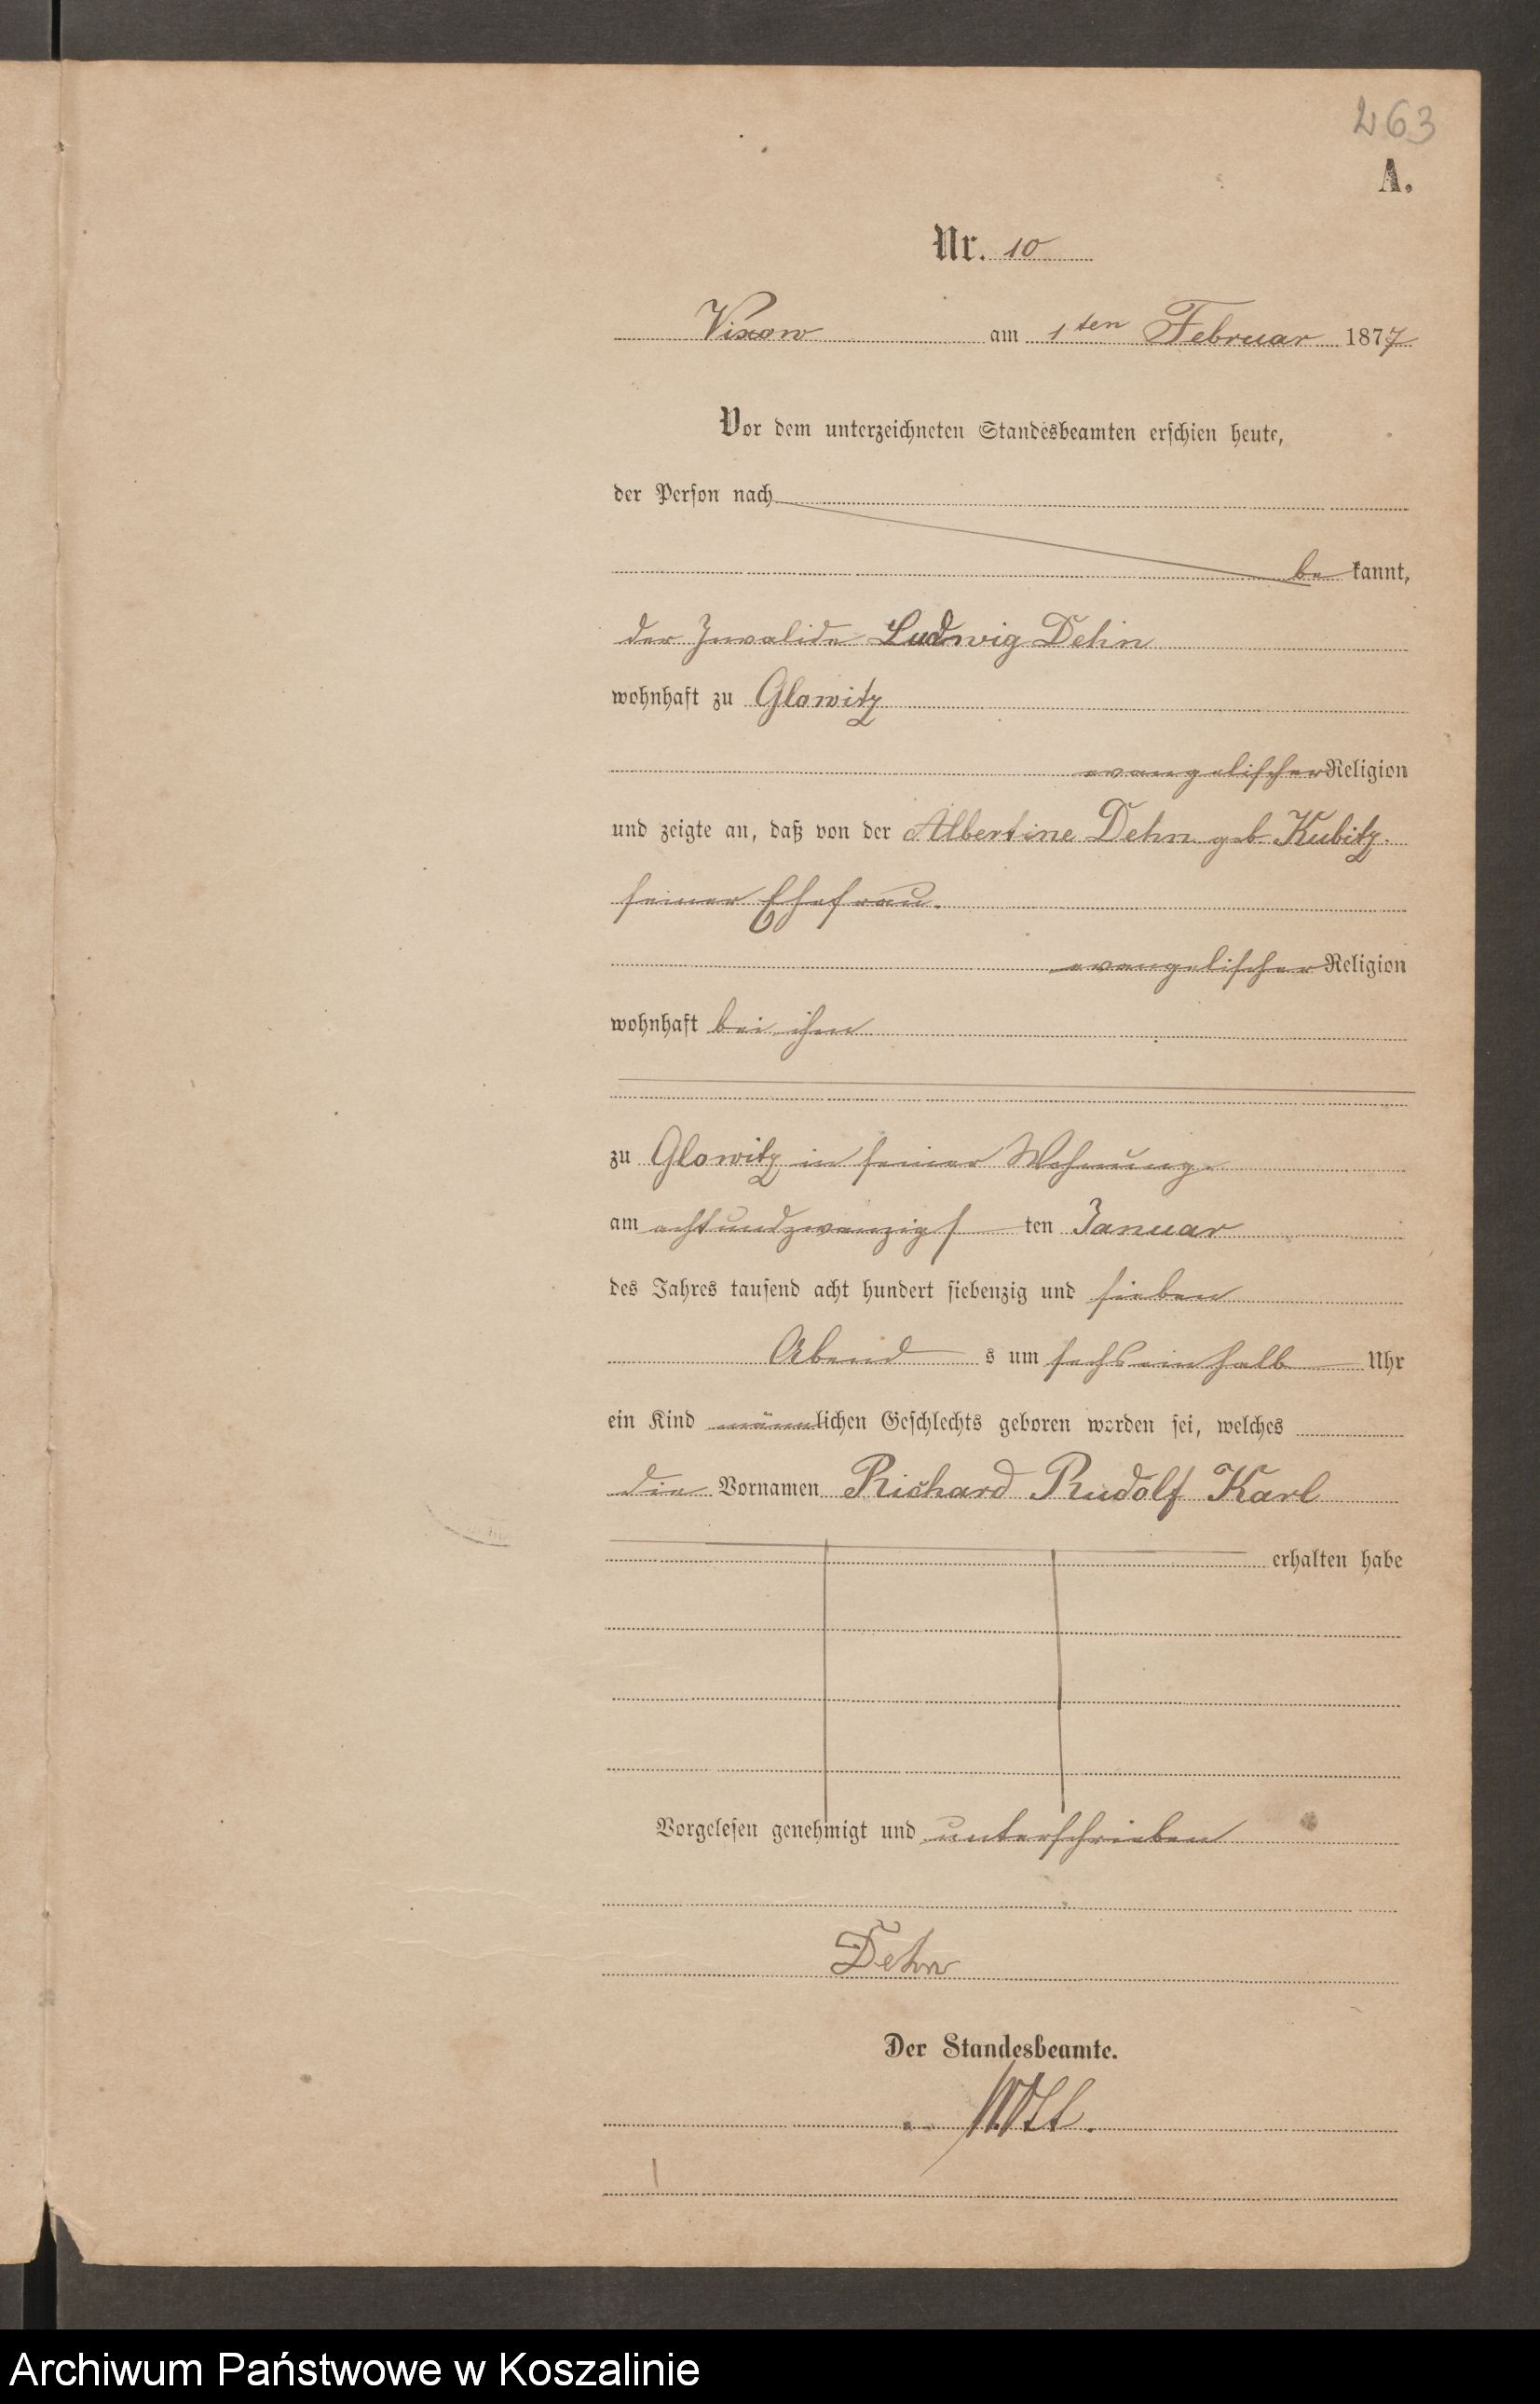 263
A.
Nr. 10
Vixow am 1ten Februar 1877
Vor dem unterzeichneten Standesbeamten erschien heute,
der Person nach
be kannt,
der Invalide Ludwig Dehn
wohnhaft zu Glowitz
evangelischer Religion
und zeigte an, daß von der Albertine Dehn geb. Kubitz.
seiner Ehefrau.
evangelischer Religion
wohnhaft bei ihm
zu Glowitz in seiner Wohnung.
am achtundzwanzigs ten Januar
des Jahres tausend acht hundert siebenzig und sieben
Abend s um sechseinhalb Uhr
ein Kind männlichen Geschlechts geboren worden sei, welches
die Vornamen Richard Rudolf Karl
erhalten habe
Vorgelesen genehmigt und unterschrieben
Dehn
Der Standesbeamte.
Archiwum Państwowe w Koszalinie